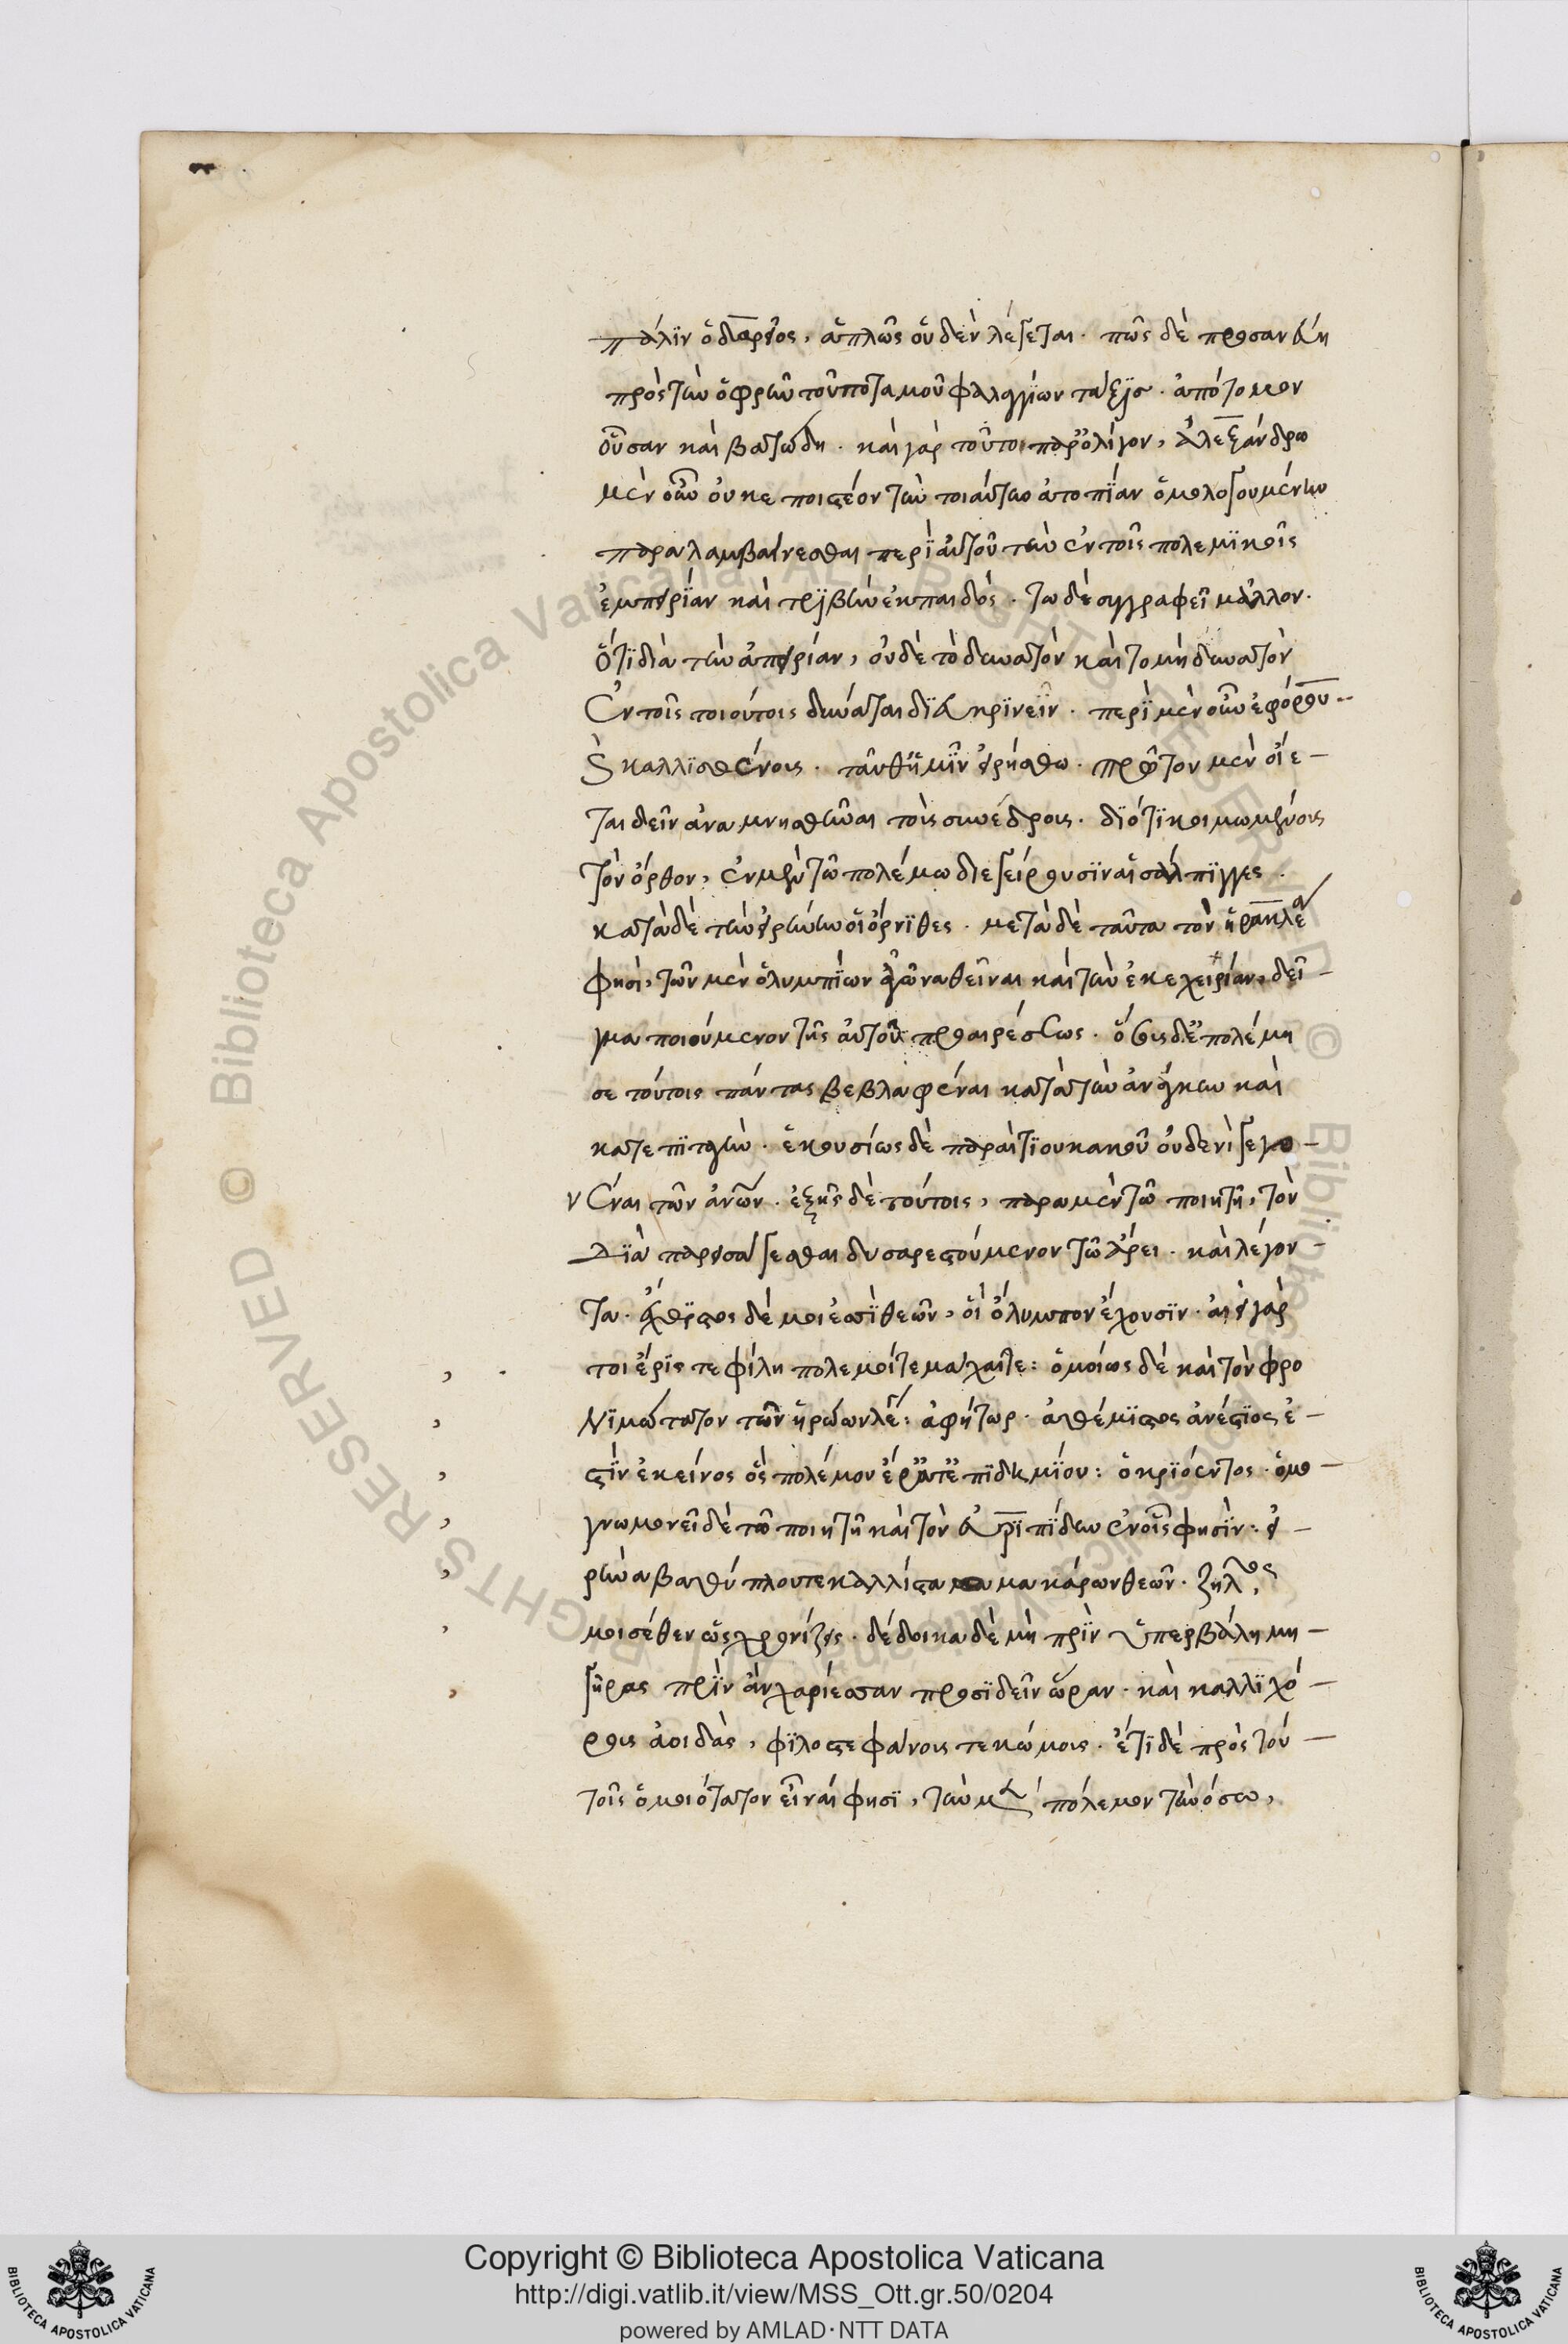 πάλιν ὁ δαρεῖος, ἁπλῶς οὐδὲν λέγεται. πῶς δὲ προσανέβη
πρὸς τὴν ὀφρῦν τοῦ ποταμοῦ φαλαγγιῶν τάξις. ἀπότομον
οὖσαν καὶ βατώδη. καὶ γὰρ τοῦτο παρολίγον, ἀλεξάνδρω
μὲν οὖν οὐκ ἐποιστέον τὴν τοιαύτην ἀτοπίαν ὁμολογουμένην
παραλαμβάνεσθαι περὶ αὐτοῦ τὴν ἐν τοῖς πολεμικοῖς
ἐμπειρίαν καὶ τριβὴν ἐκ παιδός. τῶ δὲ συγγραφεῖ μᾶλλον.
ὅτι διὰ τὴν ἀπειρίαν, οὐδὲ τὸ δυνατὸν καὶ τὸ μὴ δυνατὸν
ἐν τοῖς τοιούτοις δύναται διευκρινεῖν. περὶ μὲν οὖν ἐφόρου
καὶ καλλισθένους. ταῦθ' ἡμῖν εἰρήσθω. πρῶτον μὲν οἴε-
ται δεῖν ἀναμνησθῆναι τοῖς συνέδροις. διότι κοιμωμένους
τὸν ὄρθον, ἐν μὲν τῶ πολέμω διεγείρουσιν αἱ σάλπιγγες.
κατὰ δὲ τὴν εἰρήνην οἱ ὄρνιθες. μετὰ δὲ ταῦτα τὸν ἡρακλέα
φησὶ, τῶν μὲν ὀλυμπίων ἀγῶνα θεῖναι καὶ τὴν ἐκεχειρίαν, δεῖ-
γμα ποιούμενον τῆς αὐτοῦ προαιρέσεως. ὅσοις δ' ἐπολέμη
σε τούτοις πάντας βεβλαφέναι κατὰ τὴν ἀνάγκην καὶ
κατ' ἐπιταγήν. ἑκουσίως δὲ παραίτιον κακοῦ οὐδενὶ γεγο-
νέναι τῶν ἀνων. ἑξῆς δὲ τούτοις, παρα μὲν τῶ ποιητῆ, τὸν
Δία παρεισάγεσθαι δυσαρεστούμενον τῶ ἄρει. καὶ λέγον-
τα. ἔχθιστος δέ μοι ἐσσὶ θεῶν, οἳ ὄλυμπον ἔχουσιν. αἰεὶ γάρ
τοι ἔρις τε φίλη πολεμοί τε μάχαι τε: ὁμοίως δὲ καὶ τὸν φρο
νιμώτατον τῶν ἡρώων λέγ: ἀφήτωρ. ἀθέμιστος ἀνέστιος ἐ-
στὶν ἐκεῖνος ὃς πολέμου ἔραται ἐπιδημίου: ὀκριόεντος. ὁμο-
γνωμονεῖ δὲ τῶ ποιητῆ καὶ τὸν εὐριπίδην ἐν οἷς φησίν: εἰ-
ρήνα βαθύπλουτε καλλίστα μακάρων θεῶν. ζῆλος
μοι σέθεν ὡς χρονίζεις. δέδοικα δὲ μὴ πρὶν ὑπερβάλη μη-
γῆρας πρὶν ἂν χαρίεσσαν προσιδεῖν ὥραν. καὶ καλλιχό-
ρους ἀοιδὰς, φιλοστεφάνους τε κώμους. ἔτι δὲ πρὸς τού-
τοις ὁμοιότατον εἶναί φησι, τὸν μὲν πόλεμον τῆ νόσω,
Copyright © Biblioteca Apostolica Vaticana
http://digi.vatlib.it/view/MSS_Ott.gr.50/0204
powered by AMLAD·NTT DATA